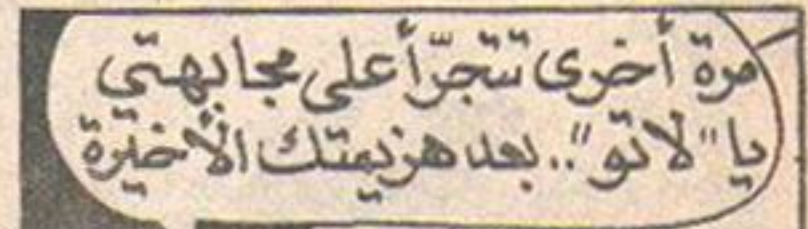 مرة أخرى تتجرّأ على مجابهتي
يا "لاتو".. بعد هزيمتك الأخيرة